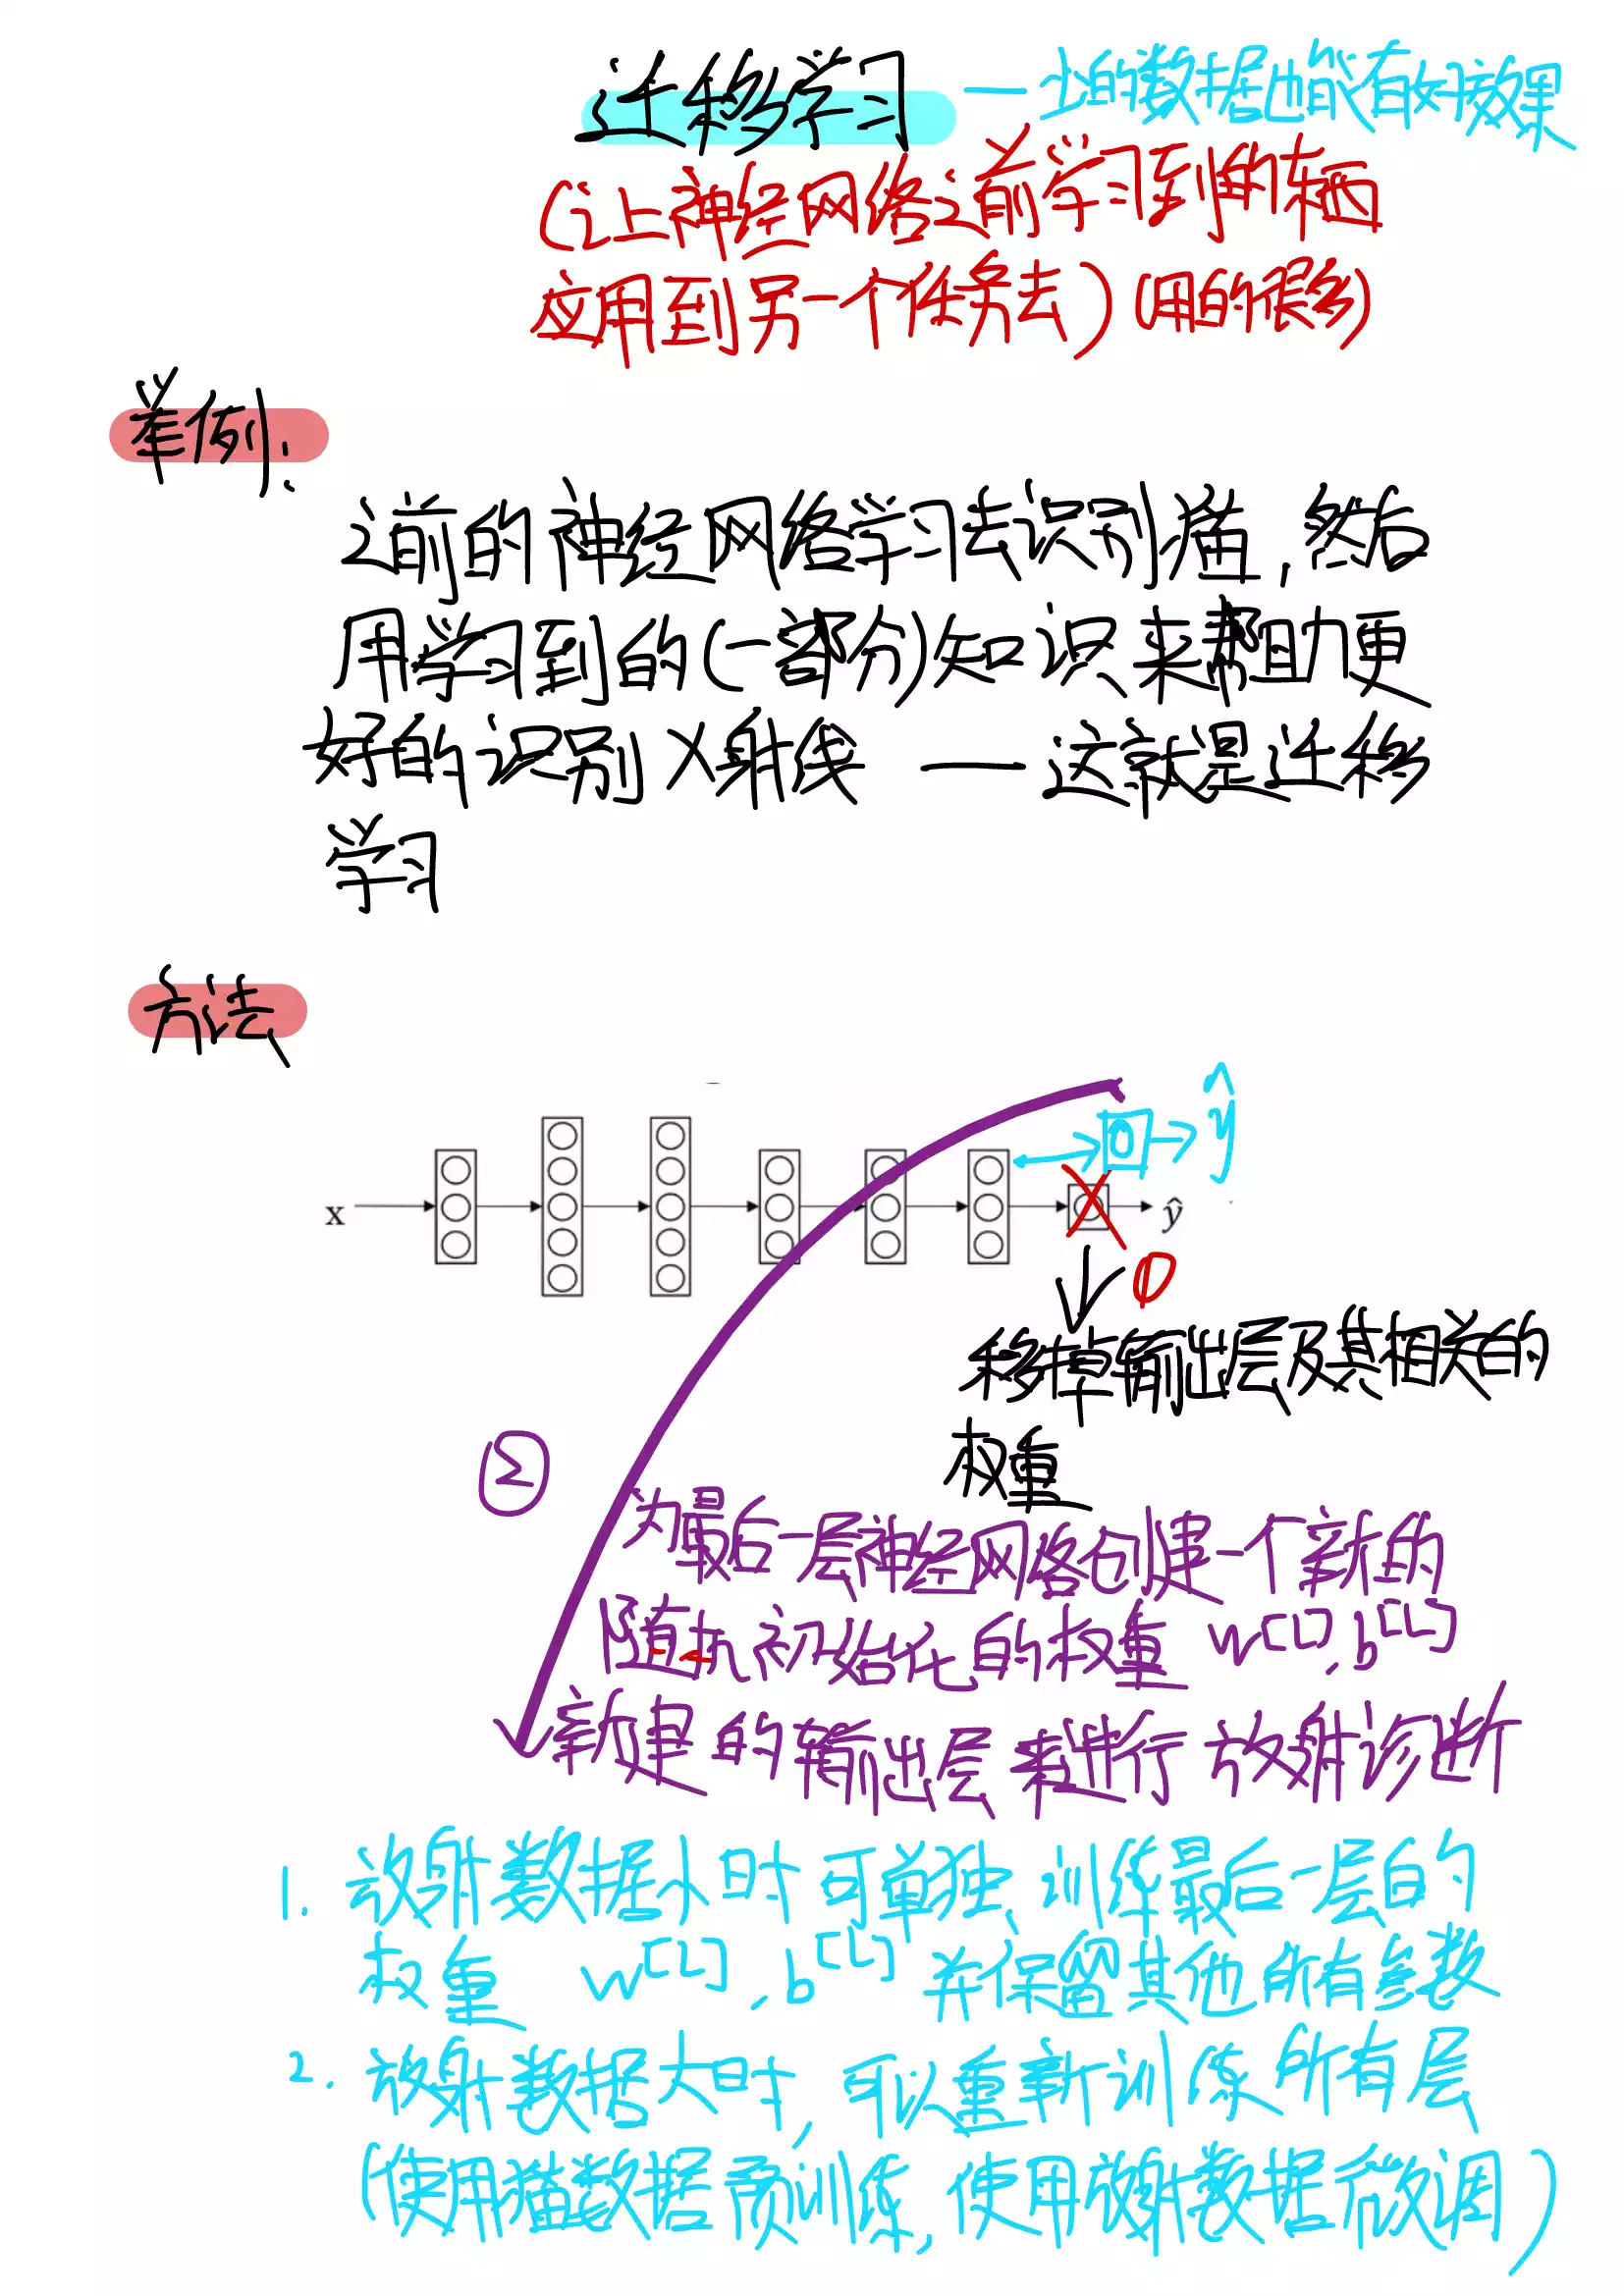 迁移学习 — 少的数据也能有好效果
(让神经网络之前学习到的东西
应用到另一个任务去)(用的很多)
举例:
之前的神经网络学习去识别猫,然后
用学习到的(一部分)知识来帮助更
好的识别X射线 — 这就是迁移
学习
方法
ŷ
x
ŷ
①
移掉输出层及其相关的
权重
②
为最后一层神经网络创建一个新的
随机初始化的权重 w[L],b[L]
新建的输出层来进行放射诊断
1. 放射数据小时可单独训练最后一层的
权重 w[L],b[L] 并保留其他所有参数
2. 放射数据大时,可以重新训练所有层
(使用猫数据预训练,使用放射数据微调)